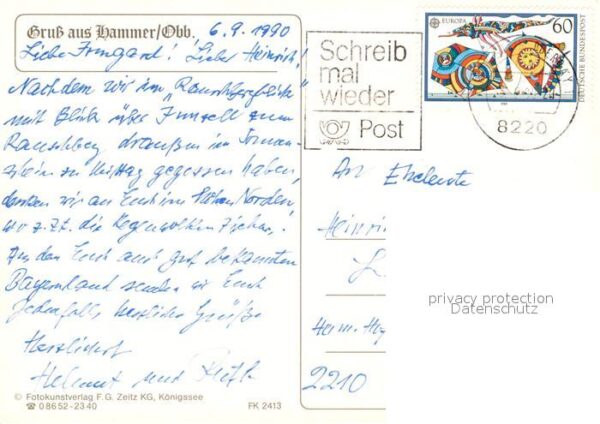 Gruß aus Hammer/Obb. 6.9.1990
Liebe Irmgard! Lieber Heinrich!
Nachdem wir im "Rauschbergblick"
mit Blick über Inzell zum
Rauschberg draußen im Sonnen-
schein zu Mittag gegessen haben,
denken wir an Euch im Hohen Norden,
wo z.Zt. die Regenwolken ziehen.
Aus dem Euch auch gut bekannten
Bayernland senden wir Euch
jedenfalls herzliche Grüße
Herzlichst
Helmut und
© Fotokunstverlag F. G. Zeitz KG, Königssee
☎ 0 86 52 - 23 40
FK 2413
Schreib
mal
wieder
Post
EUROPA 60
DEUTSCHE BUNDESPOST
8220
An Eheleute
Heinri
2210
privacy protection
Datenschutz